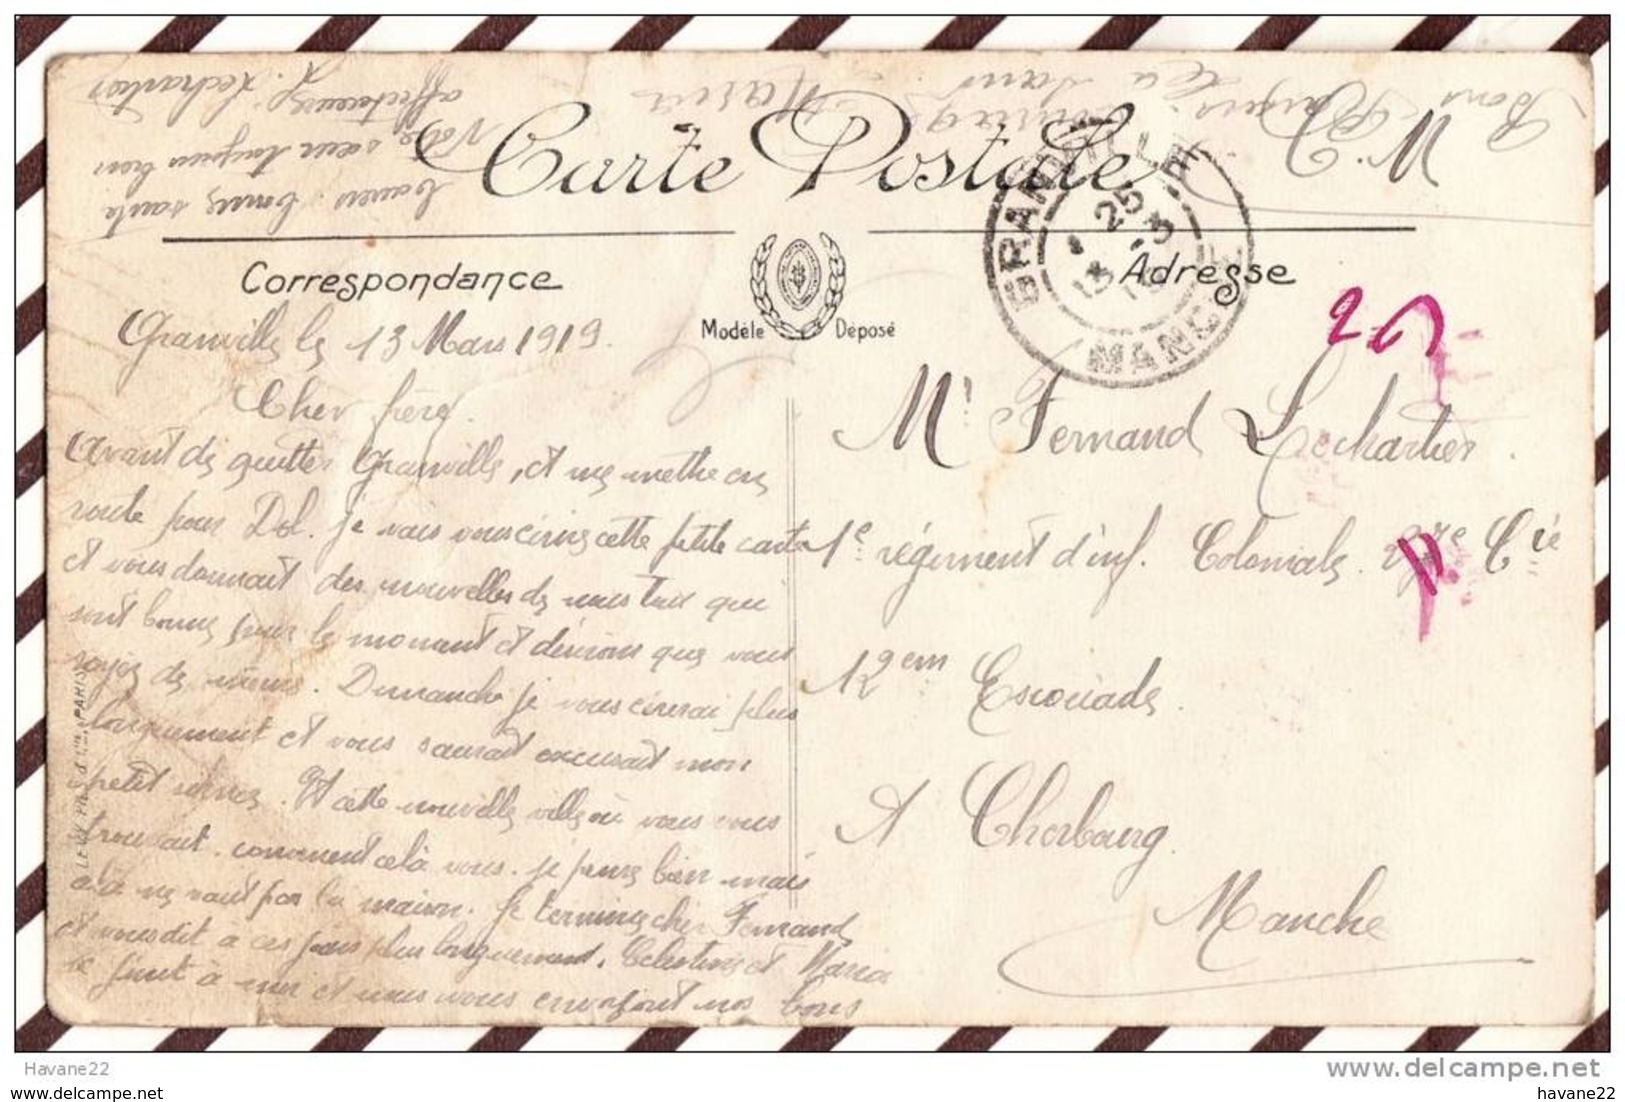 Carte Postale
Correspondance
Adresse
Modèle Déposé
GRANVILLE
25
13 -3
MANCHE
Granville le 13 Mars 1919.
Cher frère
Avant de quitter Granville, et me mettre en
route pour Dol. je vais vous cette petite carte
et vous donnant des nouvelles de nous tous qui
sont bonne pour le moment et désirons que vous
soyez de même. Dimanche je vous plus
longuement et vous saurait excusait mon
petit . Et cette nouvelle ville où vous vous
trouvait. comment cela vous. je pense bien mais
cela ne vaut pas la maison. Je termine cher Fernand
et vous dit à ces jours plus longuement. Celestine et Maria
se joint à moi et nous vous envoyont nos bons
Bons Baisers
de ta
sœur
Maria
M. L.
baisers. bonne santé
Votre sœur toujours bien
affectueuse. L. Lechartier
Mr Fernand Lechartier.
1e régiment d'inf. Coloniale. 27me Cie
12em Escouade.
A Cherbourg.
Manche
LEVY FILS & Cie, PARIS
Havane22
delcampe.net
havane22